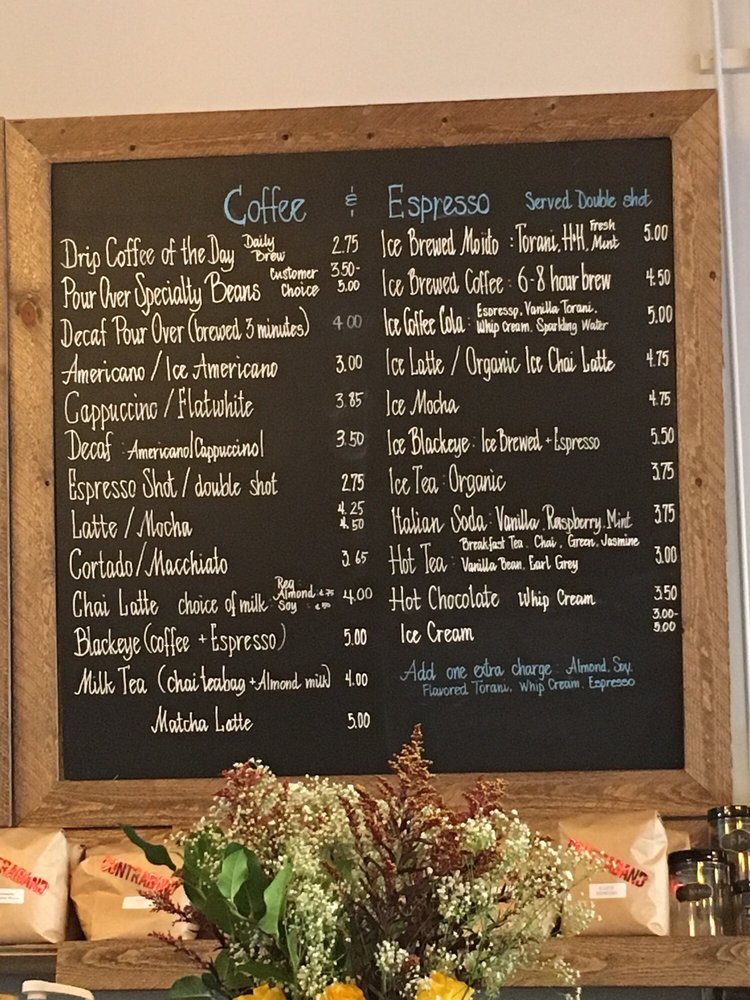 Coffee & Espresso Served Double shot
Drip Coffee of the Day Daily Brew 2.75
Pour Over Specialty Beans Customer Choice 3.50- 5.00
Decaf Pour Over (brewed 3 minutes) 4 00
Americano / Ice Americano 3.00
Cappuccino / Flatwhite 3.85
Decaf : Americano|Cappuccino| 3.50
Espresso Shot / double shot 2.75
Latte / Mocha 4.25 4.50
Cortado / Macchiato 3.65
Chai Latte choice of milk : Reg Almond Soy 4.00
Blackeye (coffee + Espresso) 5.00
Milk Tea (chai teabag + Almond milk) 4.00
Matcha Latte 5.00
Ice Brewed Mojito : Torani, H+H, Fresh Mint 5.00
Ice Brewed Coffee : 6-8 hour brew 4.50
Ice Coffee Cola : Espresso, Vanilla Torani, Whip Cream, Sparkling Water 5.00
Ice Latte / Organic Ice Chai Latte 4.75
Ice Mocha 4.75
Ice Blackeye : Ice Brewed + Espresso 5.50
Ice Tea : Organic 3.75
Italian Soda : Vanilla, Raspberry, Mint 3.75
Hot Tea : Breakfast Tea, Chai, Green, Jasmine Vanilla Bean, Earl Grey 3.00
Hot Chocolate Whip Cream 3.50
Ice Cream 3.00- 5.00
Add one extra charge : Almond, Soy,
Flavored Torani, Whip Cream, Espresso